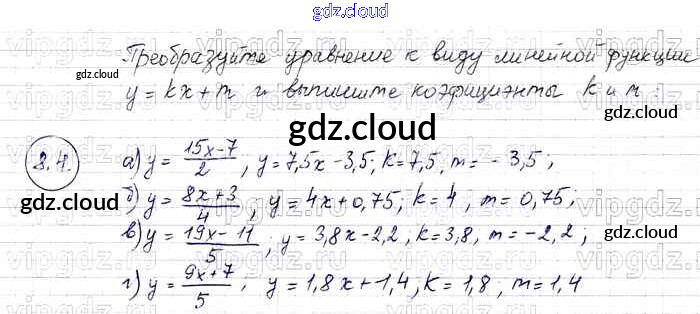 gdz.cloud
Преобразуйте уравнение к виду линейной функции
gdz.cloud
y = kx + m и выпишите коэфициенты k и m :
gdz.cloud
8.4. а) y = 15x-7/2, y = 7,5x - 3,5; k = 7,5, m = - 3,5;
б) y = 8x+3/4, y = 4x + 0,75; k = 4, m = 0,75;
gdz.cloud gdz.cloud
в) y = 19x-11/5; y = 3,8x - 2,2, k = 3,8, m = -2,2;
gdz.cloud
г) y = 9x+7/5; y = 1,8x + 1,4, k = 1,8, m = 1,4